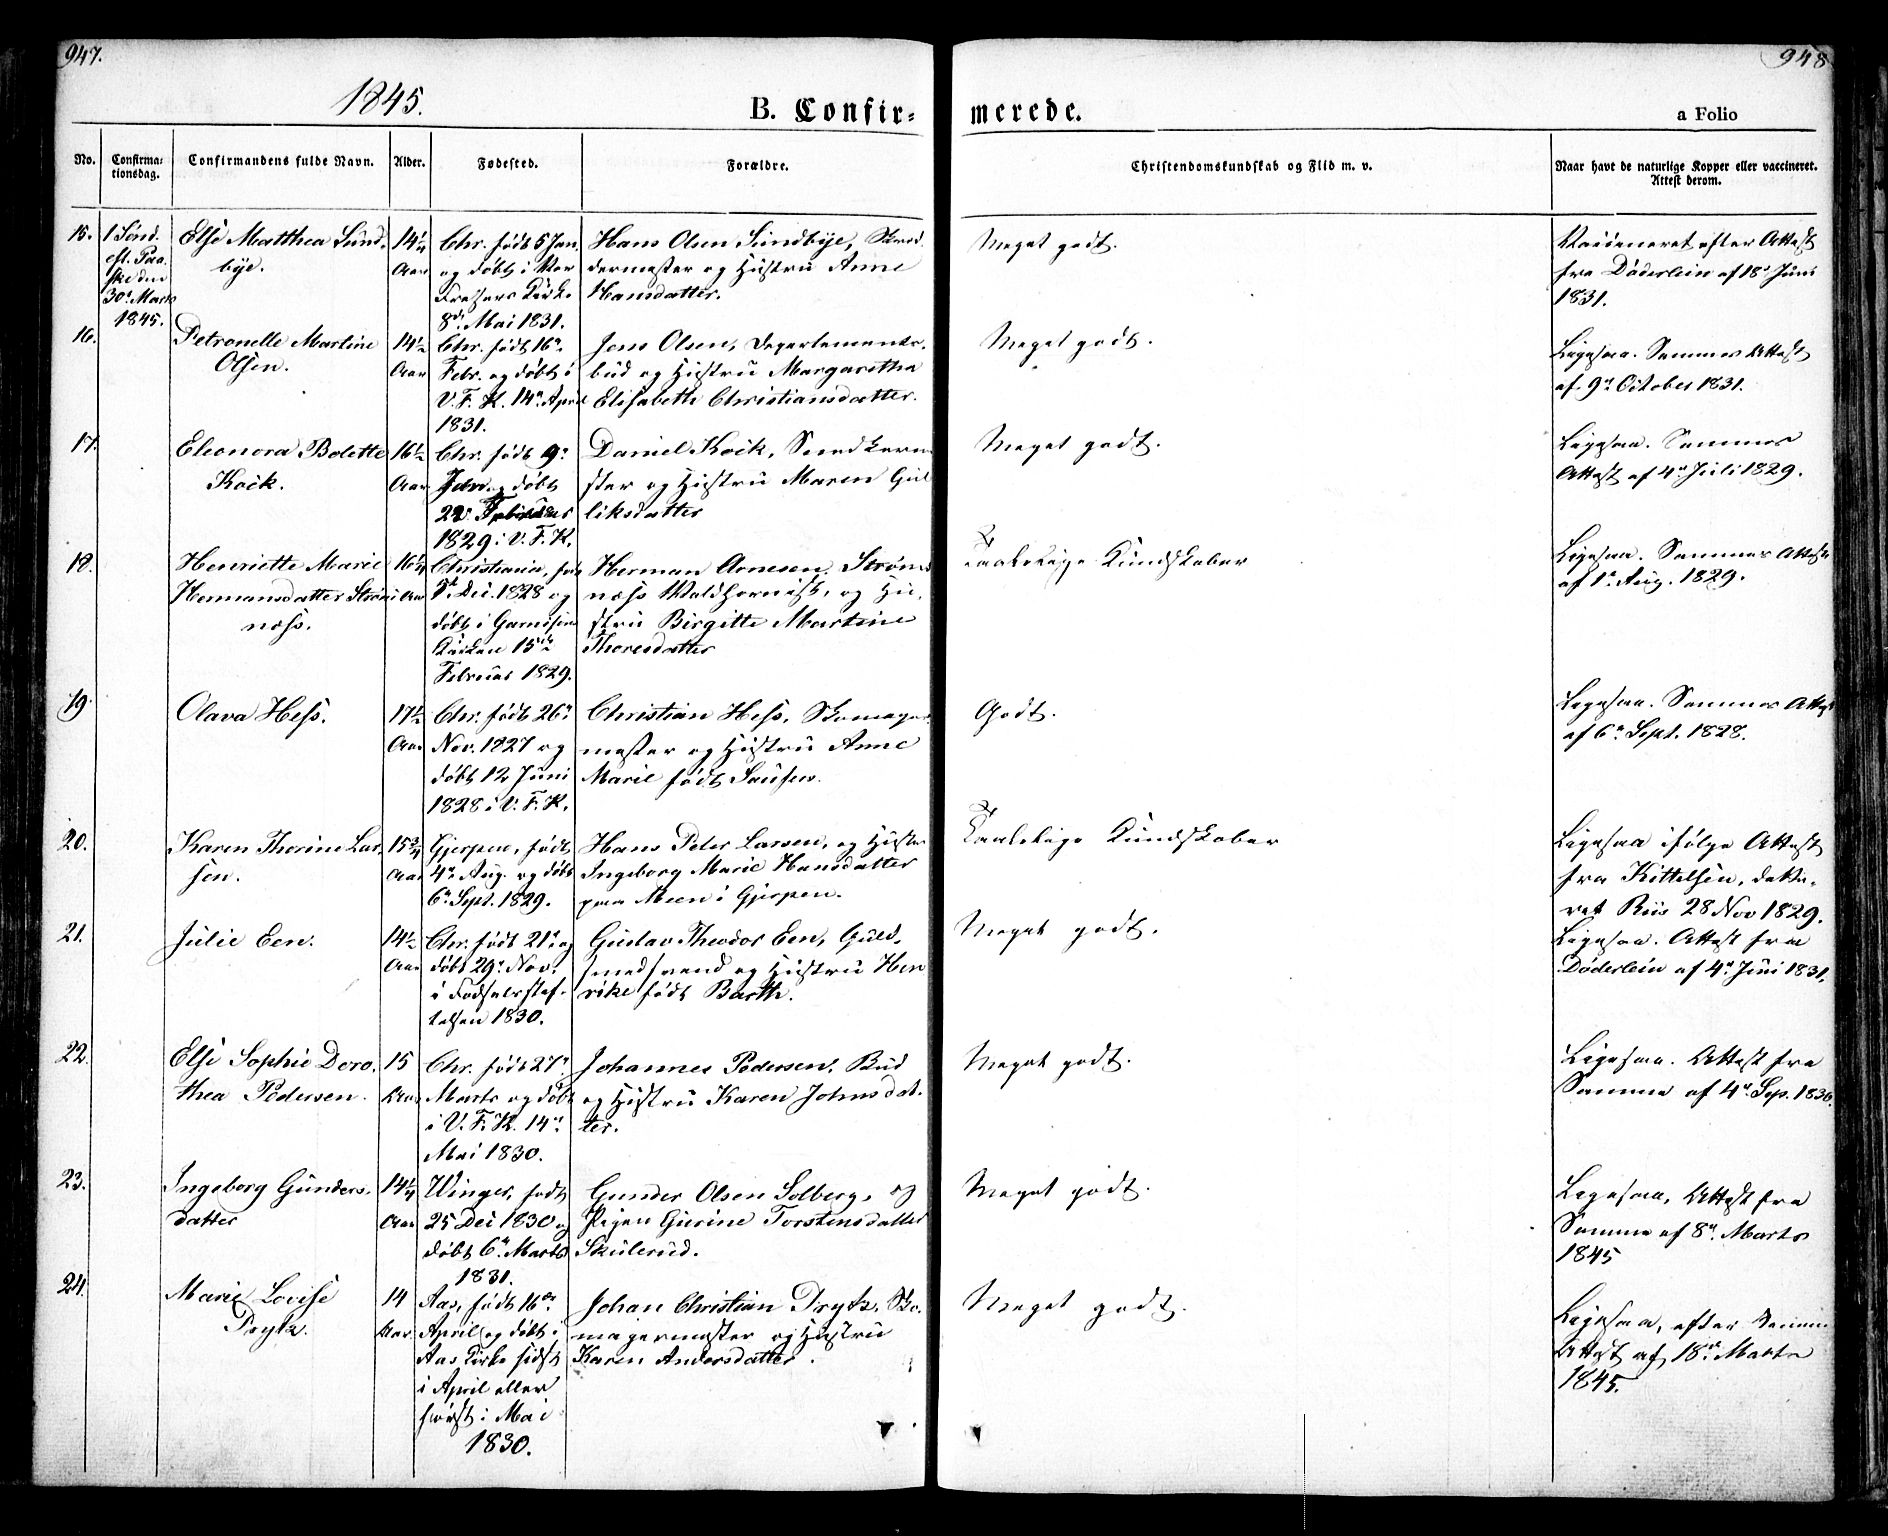 947.
948
1845.
B. Confir-
merede.
a Folio
No.
Confirma-
tionsdag.
Confirmandens fulde Navn.
Alder.
Fødested.
Forældre.
Christendomskundskab og Flid m. v.
Naar havt de naturlige Kopper eller vaccineret.
Attest derom.
15.
1 Sønd.
eft. Paa-
ske den
30te Marts
1845.
Else Matthea Sund-
bye.
14 1/4
Aar
Chr. født 5 Jan.
og døbt i Vor
Frelsers Kirke
8de Mai 1831.
Hans Olsen Sundbye,
dermester og Hustru Anne
Hansdatter.
Meget godt.
Vaccineret efter Attest
fra Døderlein af 18de Juni
1831.
16.
Petronelle Martine
Olsen.
14 1/2
Aar
Chr. født 16de
Febr. og døbt i
V. F. K. 14de April
1831.
Jens Olsen, Departements-
bud og Hustru Margaretha
Elisabeth Christiansdatter.
Meget godt.
Ligesaa. Sammes Attest
af 9de October 1831.
17.
Eleonora Bolette
Kock.
16 1/2
Aar
Chr. født 9de
og døbt
22 Februar
1829 i V. F. K.
Daniel Kock,
ster og Hustru Maren Gul
liksdatter
Meget godt.
Ligesaa. Sammes
Attest af 4de Juli 1829.
18.
Henriette Marie
Hermansdatter Strøm
næss.
16 1/4
Aar
Christiania, født
Dec. 1828 og
døbt i Garnisons
Kirken 15de
Februar 1829.
Herman Arnesen Strøm
næss Waldhornist, og Hu-
stru Birgitte Martine
Thoresdatter
Taalelige Kundskaber
Ligesaa. Sammes Attest
af 1ste Aug. 1829.
19.
Olava Hess.
17 1/2
Aar
Chr. født 26de
Nov. 1827 og
døbt 12 Juni
1828 i V. F. K.
Christian Hess, Skomager
mester og Hustru Anne
Marie født
Godt.
Ligesaa. Sammes Attest
af 6te Sept. 1828.
20.
Karen Thorine Lar-
sen.
15 3/4
Aar
Gjerpen, født
4de Aug. og døbt
6te Sept. 1829.
Hans Peter Larsen, og Hustru
Ingeborg Marie Hansdatter
paa Meen i Gjerpen.
Taalelige Kundskaber
Ligesaa ifølge Attest
fra Kittelsen, date-
ret Riis 28 Nov 1829.
21.
Julie Een.
14 1/2
Aar
Chr. født 21de og
døbt 29de Nov.
i Fødselsstif-
telsen 1830.
Gustav Theodor Een, Guld-
smedsvend og Hustru Hen
rike født Barth.
Meget godt.
Ligesaa. Attest fra
Døderlein af 4de Juni 1831.
22.
Else Sophie Doro-
thea Pedersen.
15
Aar
Chr. født 27de
Marts og døbt
i V. F. K. 14de
Mai 1830.
Johannes Pedersen, Bud
og Hustru Karen Johnsdat-
ter.
Meget godt.
Ligesaa. Attest fra
Samme af 4de Sep. 1830.
23.
Ingeborg Gunders-
datter
14 1/4
Aar
Winger, født
25 Dec 1830 og
døbt 6te Marts
1831.
Gunder Olsen Solberg, og
Pigen Gurine Torstensdatter
Skulerud.
Meget godt.
Ligesaa, Attest fra
Samme af 8de Marts
1845
24.
Marie Lovise
Prytz.
14
Aar
Aas, født 16de
April og døbt i
Aas Kirke sidst
i April eller
først i Mai
1830.
Johan Christian Prytz, Sko-
magermester og Hustru
Karen Andersdatter.
Meget godt.
Ligesaa, efter Samme
Attest af 18de Marts
1845.